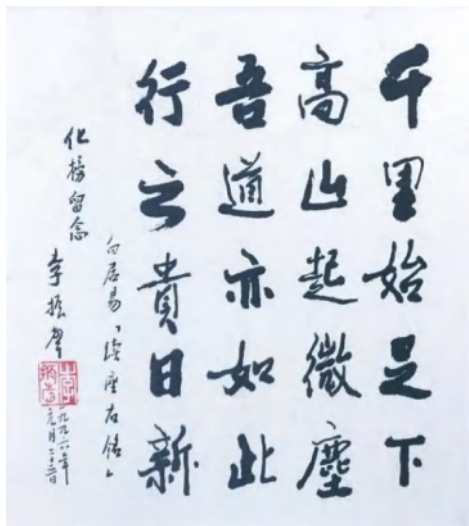 千里始足下
高山起微塵
吾道亦如此
行之貴日新
白居易「續座右銘」
化榜留念
李振聲
一九九六年
元月二十二日